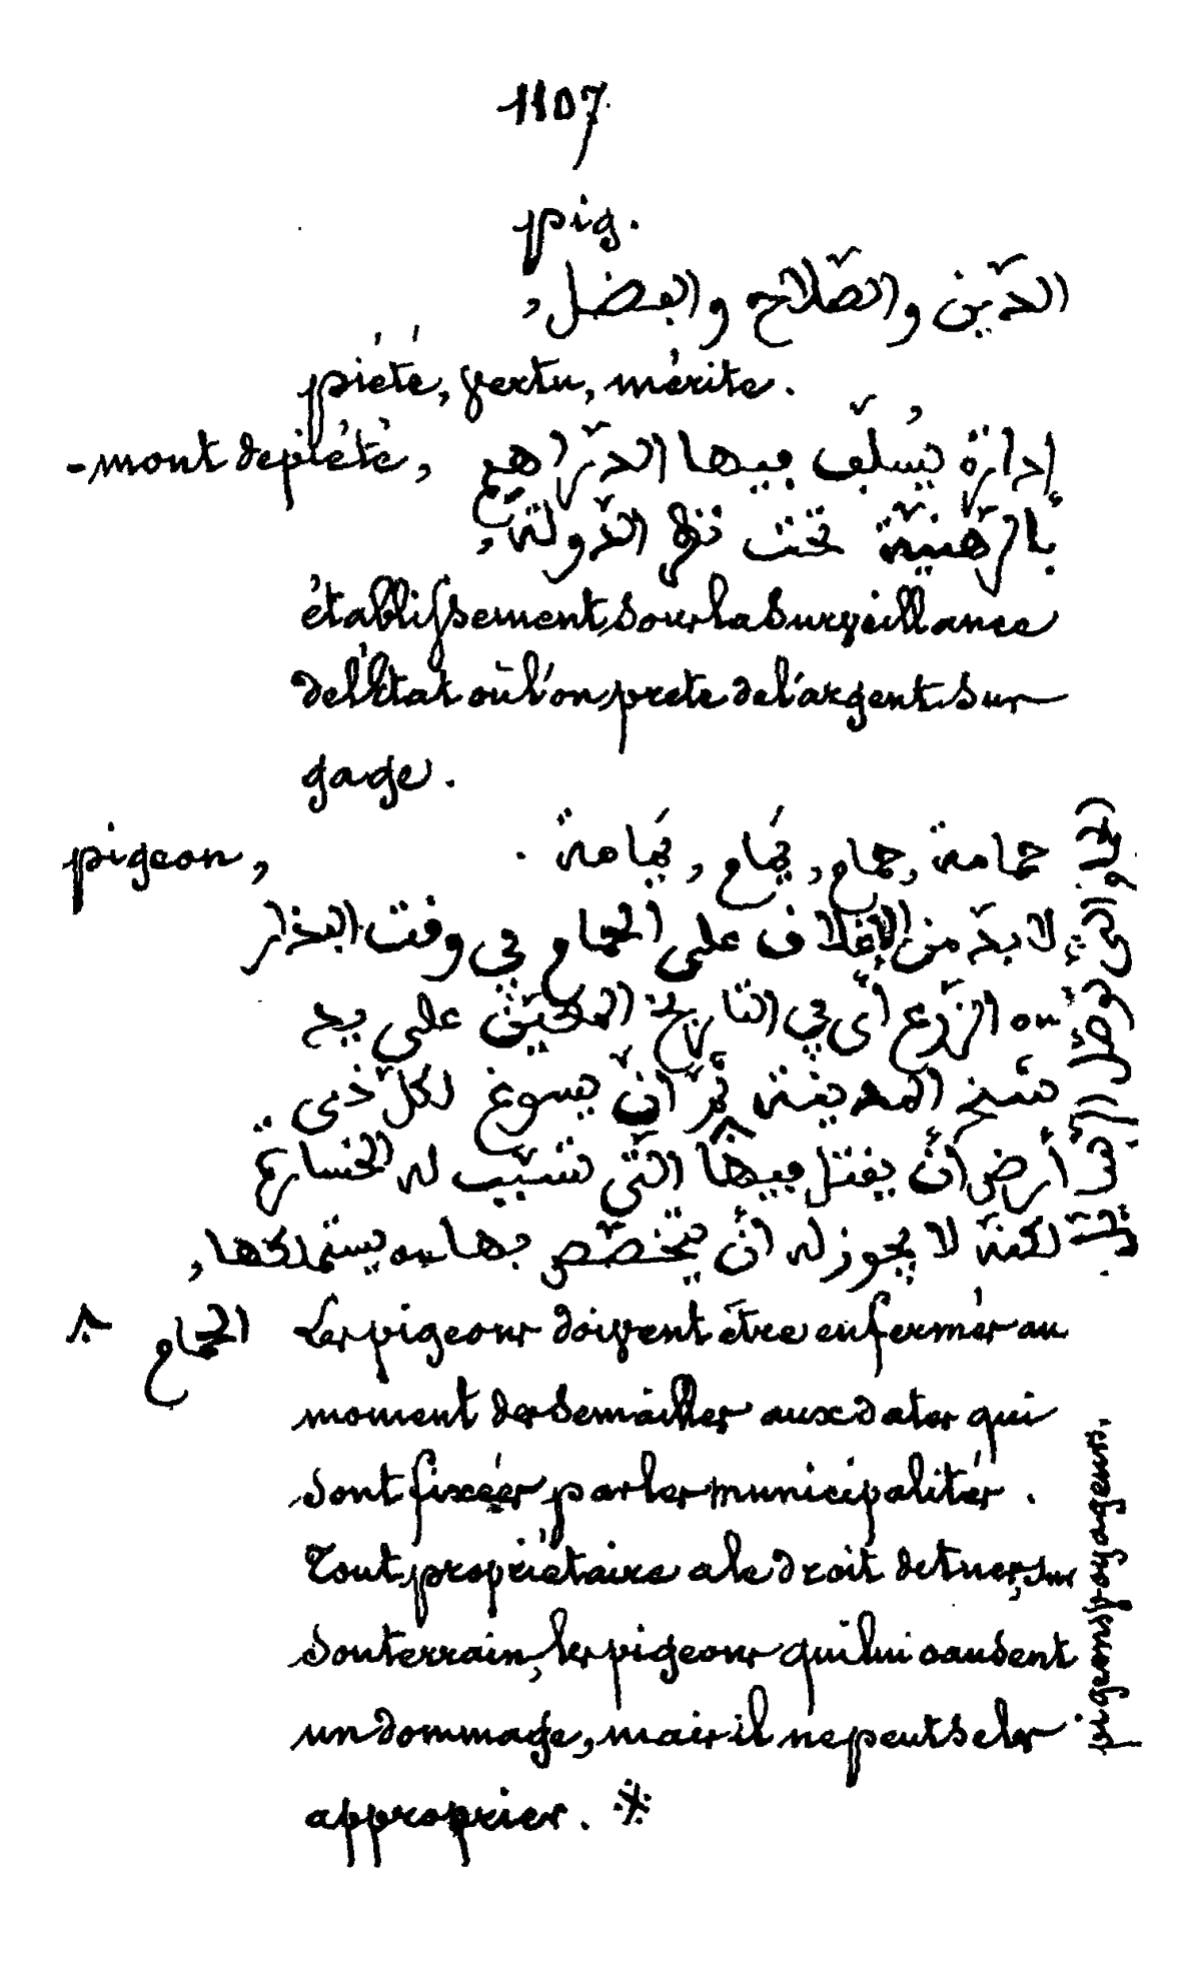 1107
pig.
الدّين والصّلاح والفضل,
piété, vertu, mérite.
-mont de piété, إدارة يُسلّف فيها الدّراهم
بالرّهنيّة تحت نظر الدّولة,
établissement, sous la surveillance
de l'État où l'on prête de l'argent sur
gage.
pigeon, حمامة, حمام, يمام, يمامة.
لا بدّ من الإغلاق على الحمام في وقت البذار
اه الزّرع أي في التاريخ المعيّن على يد
شيخ المدينة ثمّ أنّ يسوغ لكلّ ذى
أرض أن يقتل فيها الّتي تسبّب له الخسارة
لكنّه لا يجوز له أن يتخصّص بها اه يستملكها,
^ الحمام
Les pigeons doivent être enfermés au
moment des semailles aux dates qui
sont fixées par les municipalités.
Tout propriétaire a le droit de tuer, sur
son terrain, les pigeons qui lui causent
un dommage, mais il ne peut se les
approprier. ※
pigeons voyageurs.